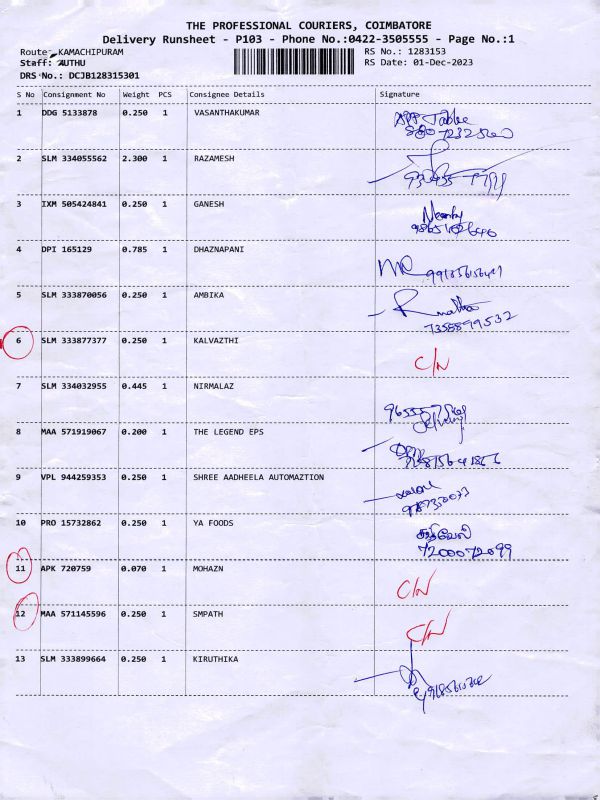 THE PROFESSIONAL COURIERS, COIMBATORE
Delivery Runsheet - P103 - Phone No.:0422-3505555 - Page No.:1
Route: KAMACHIPURAM RS No.: 1283153
Staff: AUTHU RS Date: 01-Dec-2023
DRS No.: DCJB128315301
S No Consignment No Weight PCS Consignee Details Signature
1 DDG 5133878 0.250 1 VASANTHAKUMAR
2 SLM 334055562 2.300 1 RAZAMESH
3 IXM 505424841 0.250 1 GANESH
4 DPI 165129 0.785 1 DHAZNAPANI
5 SLM 333870056 0.250 1 AMBIKA
7358899532
6 SLM 333877377 0.250 1 KALVAZTHI C/N
7 SLM 334032955 0.445 1 NIRMALAZ
8 MAA 571919067 0.200 1 THE LEGEND EPS
9 VPL 944259353 0.250 1 SHREE AADHEELA AUTOMAZTION
10 PRO 15732862 0.250 1 YA FOODS
7200072099
11 APK 720759 0.070 1 MOHAZN C/N
12 MAA 571145596 0.250 1 SMPATH C/N
13 SLM 333899664 0.250 1 KIRUTHIKA